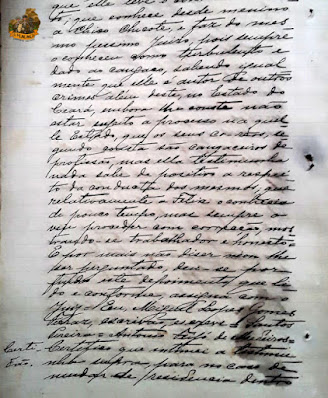 que elle teve o
so, que conhece desde menino
a Chico Chicote, e faz do mes
mo pessimo juizo, pois sempre
o conheceu como turbulento e
dado ao cangaço, sabendo igual
mente que elle é autor de outros
crimes alem deste, no Estado do
Ceará, embora lhe conste não
estar sujeito a processo n'aquel
le Estado, que os seus co-reos, se
gundo consta são cangaceiros de
profissão, mas ella testemunha
nada sabe de positivo a respei
to da conducta dos mesmos, que
relativamente a Felix o conhece
de pouco tempo, mas sempre o
vio proceder com correpção, mos
trando-se trabalhador e honesto.
E por mais não dizer nem lhe
ser perguntado, deu-se por
findo este depoimento, que li
do e conforme, assigna com o
Juiz. Eu, Miguel Lopes
escrivão, escrevi.
Certi- Certifico que intimei a testemu
dão. nha supra, para no caso de
mudar de residencia dentro